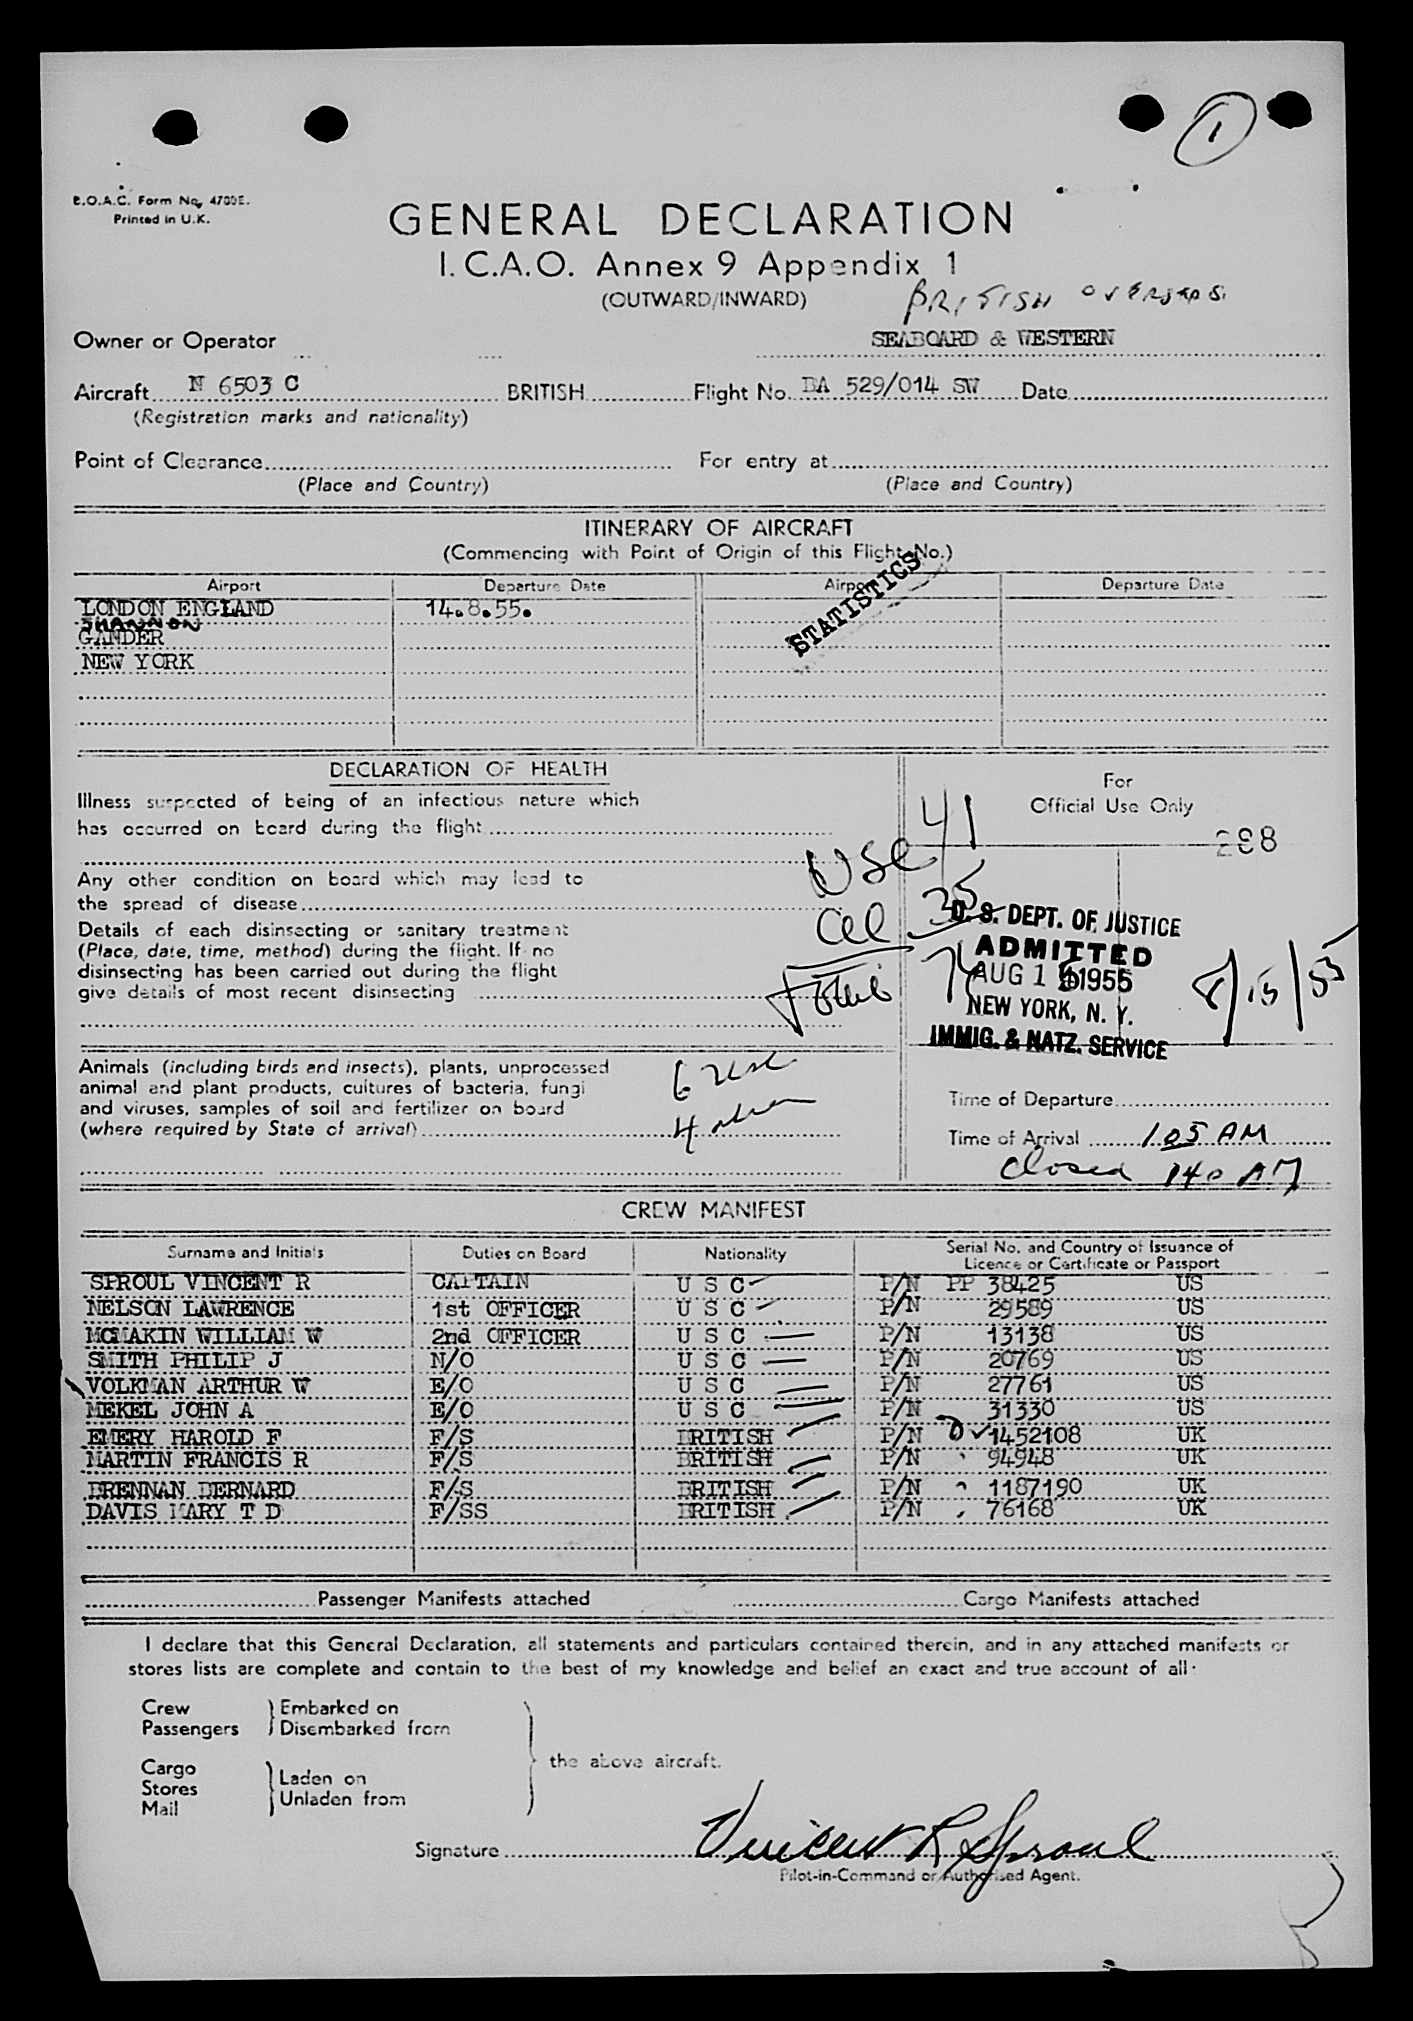 1
B.O.A.C. Form No. 4700E.
Printed in U.K.
GENERAL DECLARATION
I.C.A.O. Annex 9 Appendix 1
(OUTWARD/INWARD)
BRITISH OVERSEAS
Owner or Operator SEABOARD & WESTERN
Aircraft N 6503 C BRITISH Flight No. BA 529/014 SW Date
(Registration marks and nationality)
Point of Clearance For entry at
(Place and Country) (Place and Country)
ITINERARY OF AIRCRAFT
(Commencing with Point of Origin of this Flight No.)
Airport Departure Date Airport Departure Date
STATISTICS
LONDON ENGLAND 14.8.55.
SHANNON
GANDER
NEW YORK
DECLARATION OF HEALTH
Illness suspected of being of an infectious nature which
has occurred on board during the flight
Any other condition on board which may lead to
the spread of disease
Details of each disinsecting or sanitary treatment
(Place, date, time, method) during the flight. If no
disinsecting has been carried out during the flight
give details of most recent disinsecting
Animals (including birds and insects), plants, unprocessed
animal and plant products, cultures of bacteria, fungi
and viruses, samples of soil and fertilizer on board
(where required by State of arrival)
For
Official Use Only
298
USC 41
35
76
6 USC
4
U. S. DEPT. OF JUSTICE
ADMITTED
AUG 15 1955
NEW YORK, N. Y.
IMMIG. & NATZ. SERVICE
8/15/55
Time of Departure
Time of Arrival 105 AM
Closed 140 AM
CREW MANIFEST
Surname and Initials Duties on Board Nationality Serial No. and Country of Issuance of
Licence or Certificate or Passport
SPROUL VINCENT R CAPTAIN U S C P/N PP 38425 US
NELSON LAWRENCE 1st OFFICER U S C P/N 29589 US
MCMAKIN WILLIAM W 2nd OFFICER U S C P/N 13138 US
SMITH PHILIP J N/O U S C P/N 20769 US
VOLKMAN ARTHUR W E/O U S C P/N 27761 US
MEKEL JOHN A E/O U S C P/N 31330 US
EMERY HAROLD F F/S BRITISH P/N D 1452108 UK
MARTIN FRANCIS R F/S BRITISH P/N 94948 UK
BRENNAN BERNARD F/S BRITISH P/N 1187190 UK
DAVIS MARY T D F/SS BRITISH P/N 76168 UK
Passenger Manifests attached Cargo Manifests attached
I declare that this General Declaration, all statements and particulars contained therein, and in any attached manifests or
stores lists are complete and contain to the best of my knowledge and belief an exact and true account of all
Crew Embarked on
Passengers Disembarked from
the above aircraft.
Cargo
Stores Laden on
Mail Unladen from
Signature Vincent R Sproul
Pilot-in-Command or Authorised Agent.